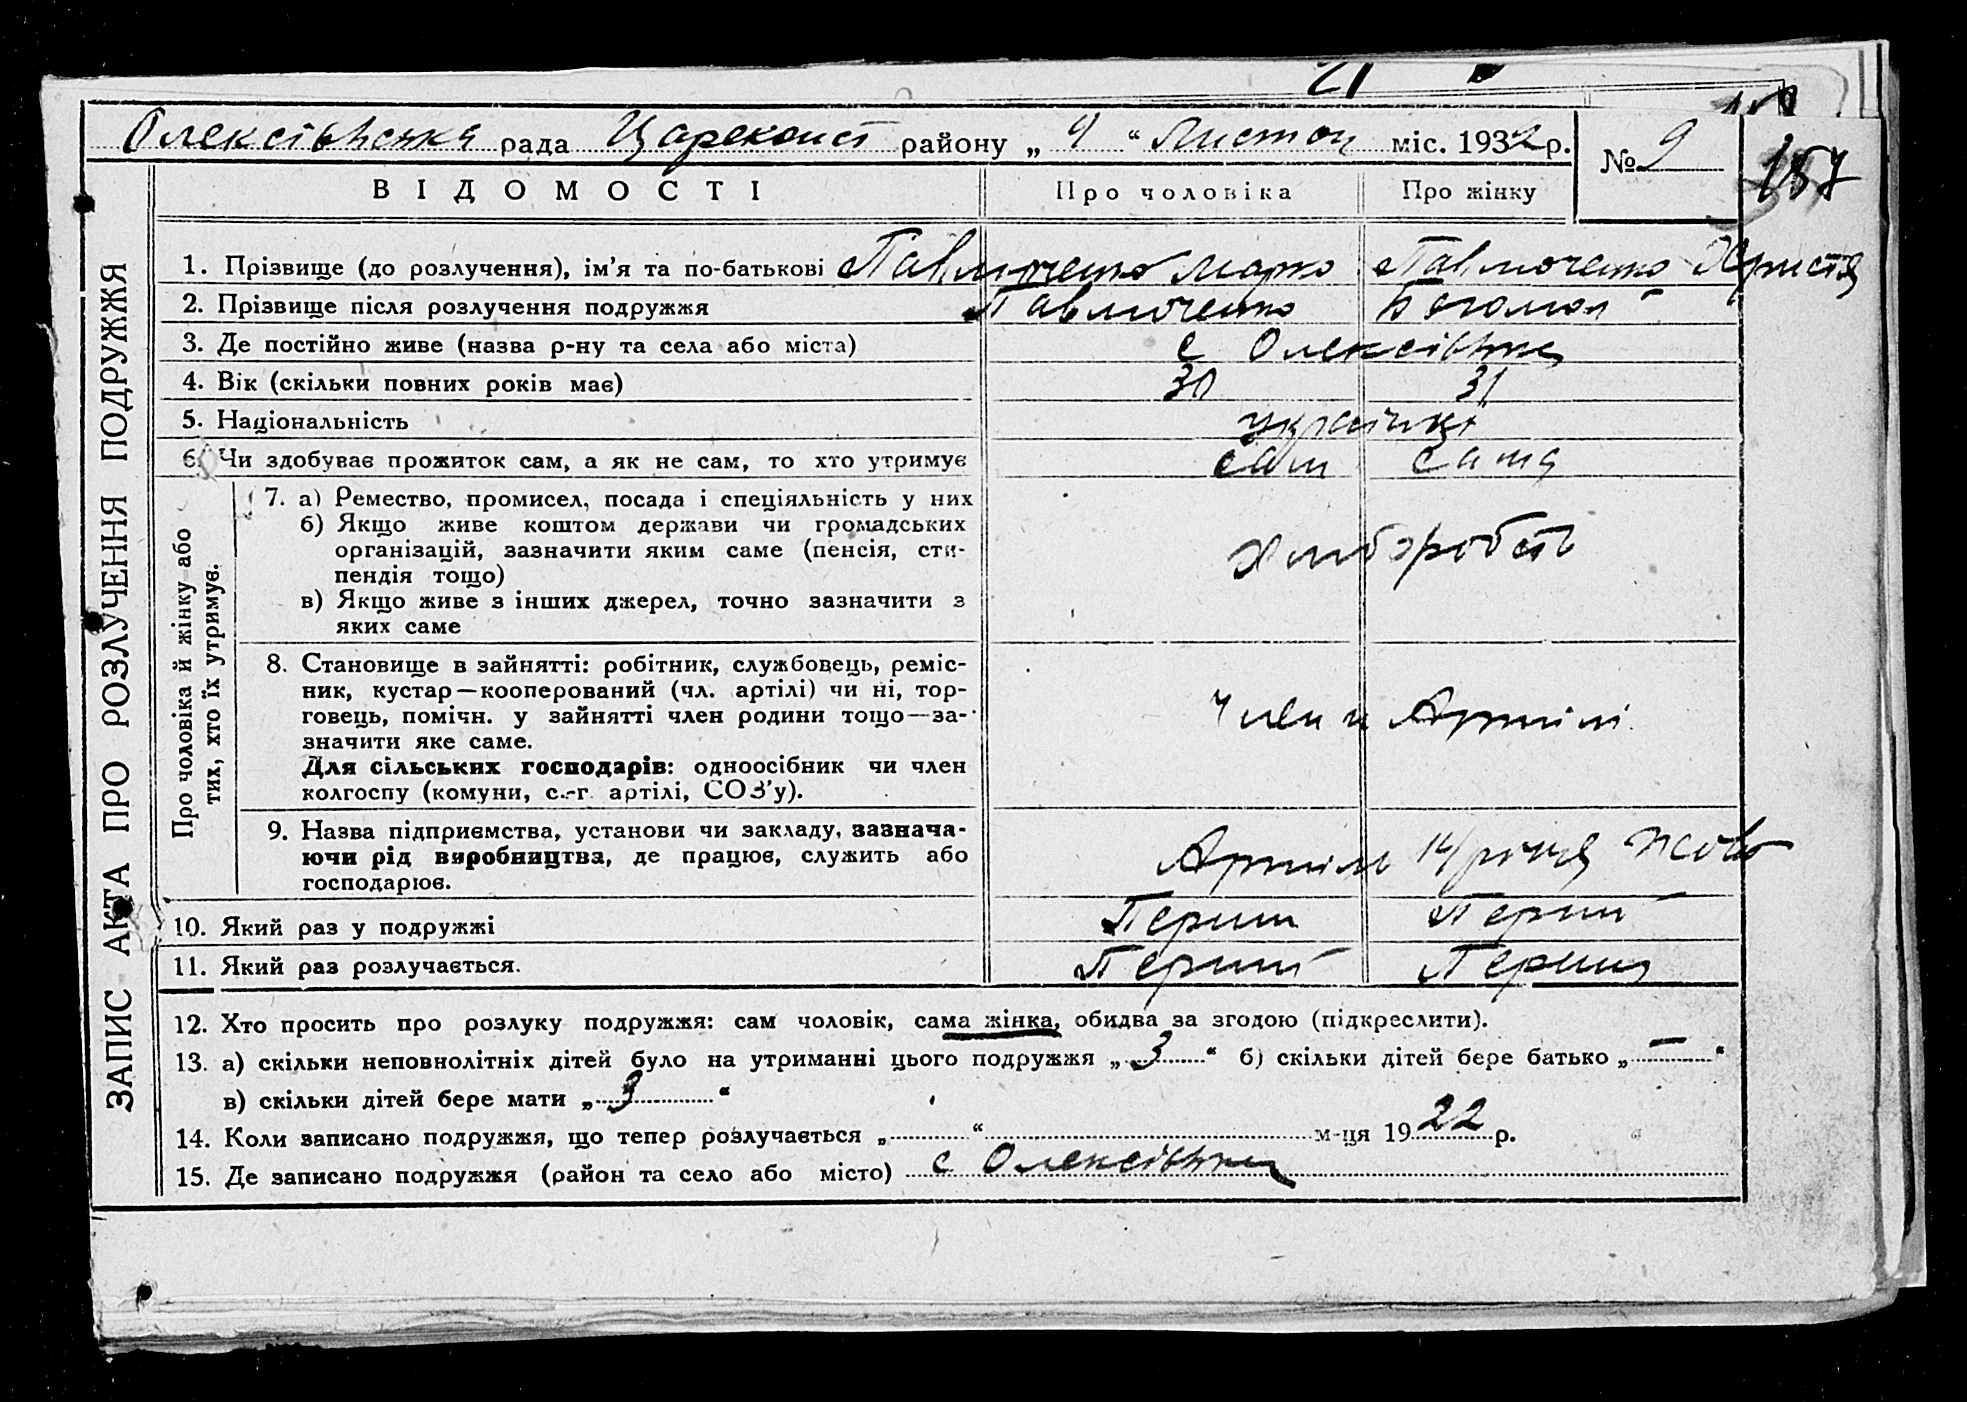 21
Олексіївська рада Цареконст району „9“ Листоп міс. 1932 р. № 9
157
ВІДОМОСТІ Про чоловіка Про жінку
ЗАПИС АКТА ПРО РОЗЛУЧЕННЯ ПОДРУЖЖЯ
1. Прізвище (до розлучення), ім’я та по-батькові Павлюченко Марко Павлюченко Христя
2. Прізвище після розлучення подружжя Павлюченко Богомол
3. Де постійно живе (назва р-ну та села або міста) с Олексіївка
4. Вік (скільки повних років має) 30 31
5. Національність українці
6. Чи здобуває прожиток сам, а як не сам, то хто утримує сам сама
Про чоловіка й жінку або тих, хто їх утримує.
7. а) Ремество, промисел, посада і спеціяльність у них
б) Якщо живе коштом держави чи громадських
організацій, зазначити яким саме (пенсія, сти-
пендія тощо)
в) Якщо живе з інших джерел, точно зазначити з
яких саме
Хліборобств
8. Становище в зайнятті: робітник, службовець, реміс-
ник, кустар—кооперований (чл. артілі) чи ні, тор-
говець, помічн. у зайнятті член родини тощо—за-
значити яке саме.
Для сільських господарів: одноосібник чи член
колгоспу (комуни, с.-г. артілі, СОЗ’у).
Члени Артілі
9. Назва підприємства, установи чи закладу, зазнача-
ючи рід виробництва, де працює, служить або
господарює.
Артіль 14/річчя Жовт
10. Який раз у подружжі Перши Перши
11. Який раз розлучається. Перший Перший
12. Хто просить про розлуку подружжя: сам чоловік, сама жінка, обидва за згодою (підкреслити).
13. а) скільки неповнолітніх дітей було на утриманні цього подружжя „3“ б) скільки дітей бере батько „—“
в) скільки дітей бере мати „3“
14. Коли записано подружжя, що тепер розлучається „ “ м-ця 1922 р.
15. Де записано подружжя (район та село або місто) с Олексіївка